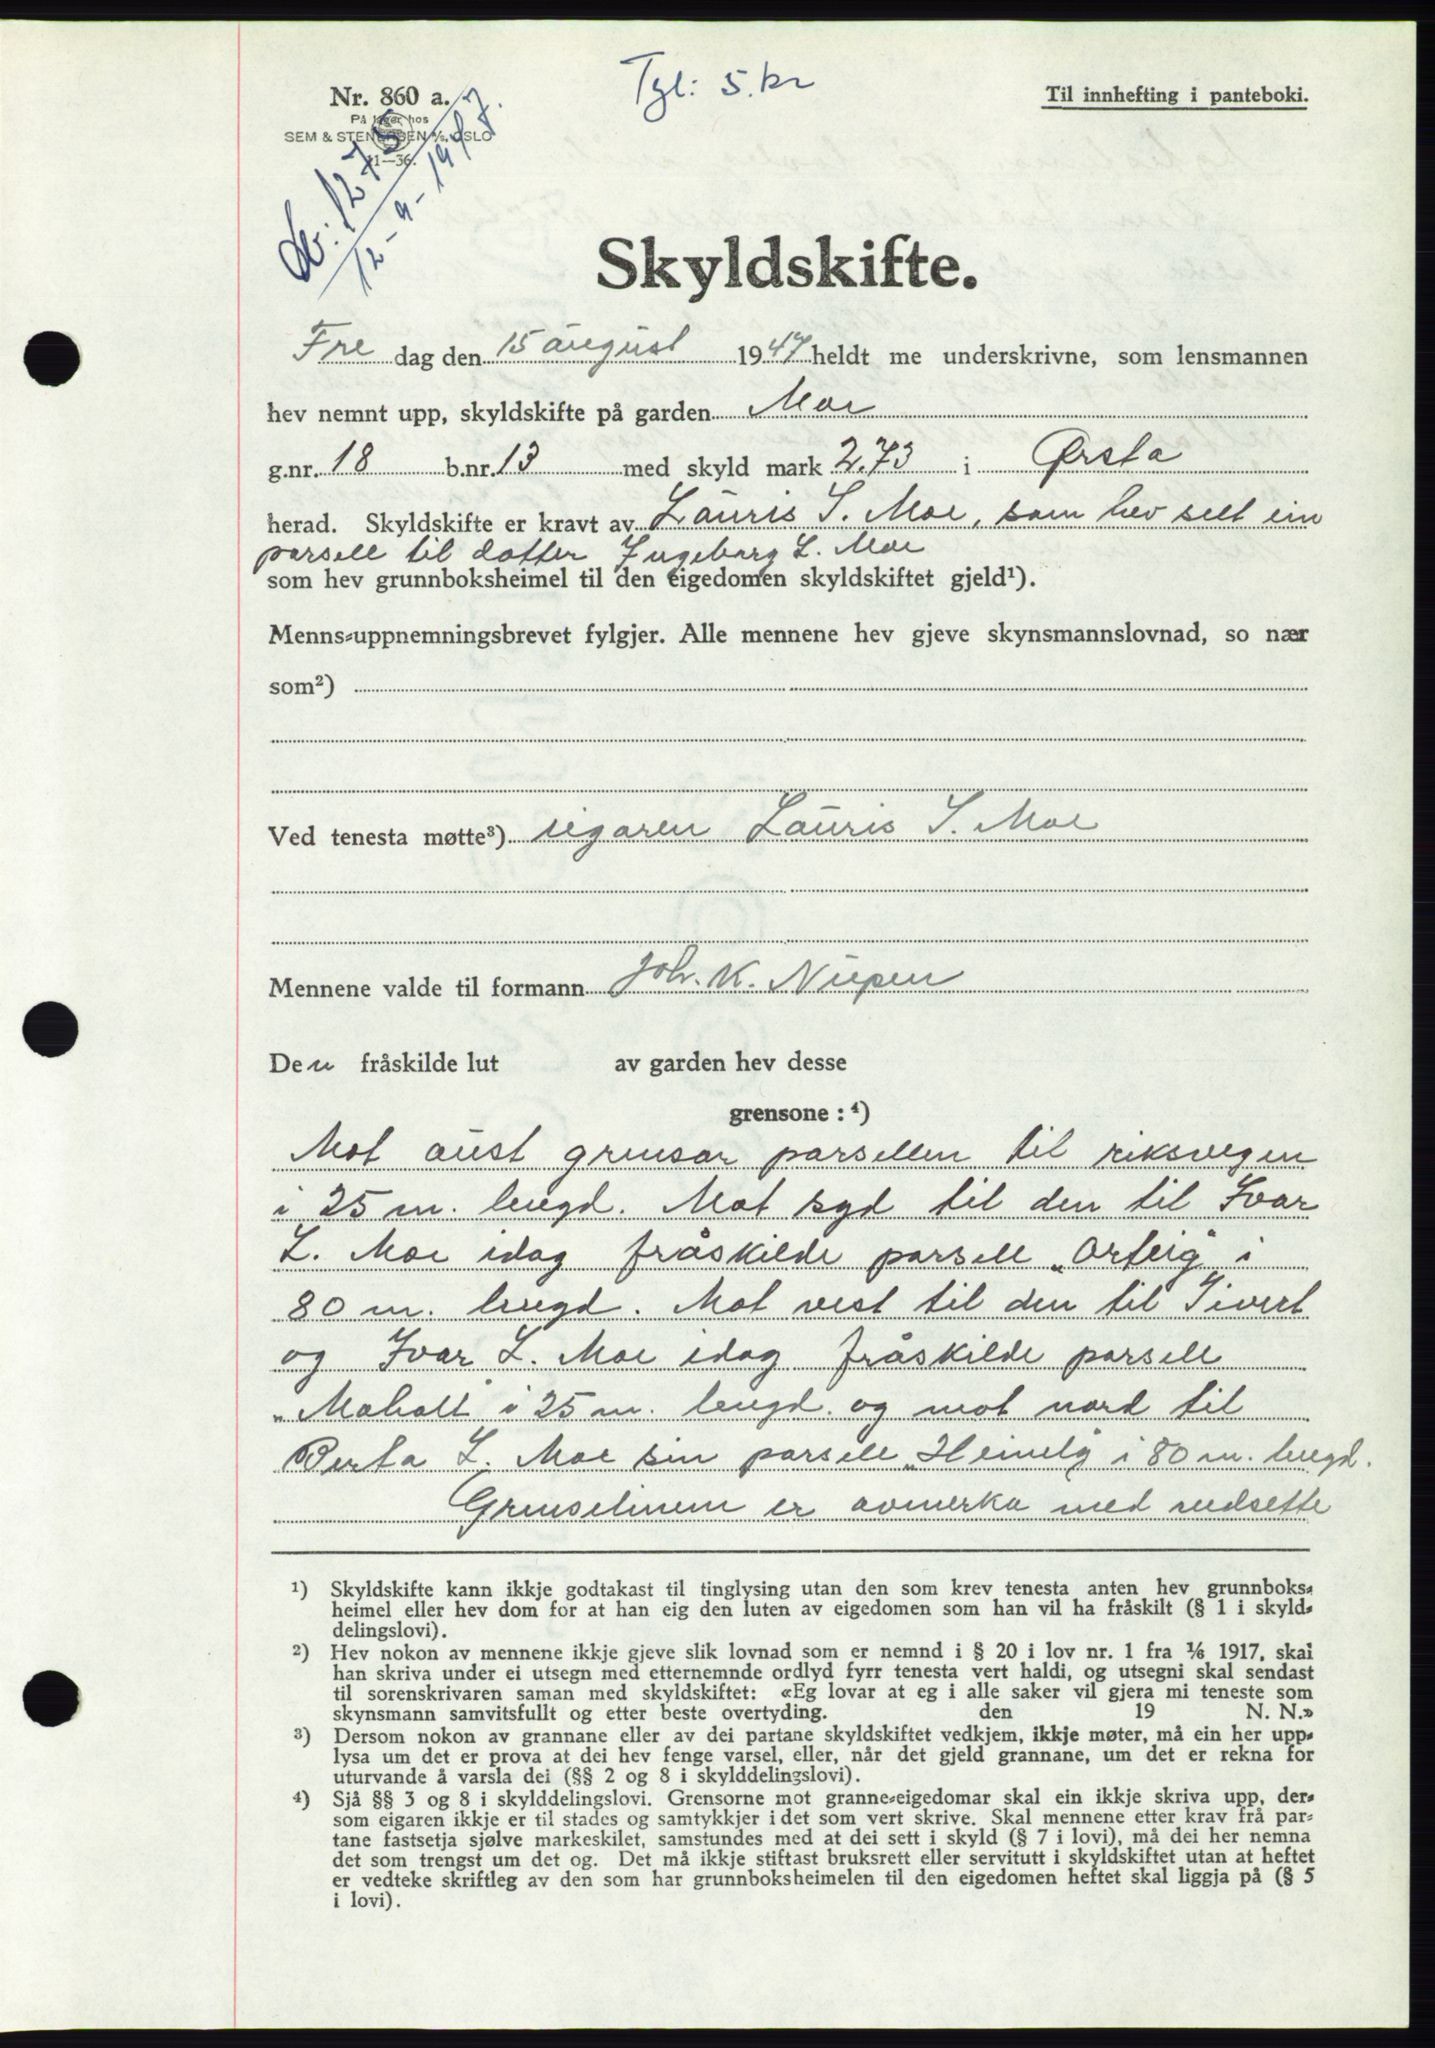 Tgl: 5. kr
Nr. 860 a.
Til innhefting i panteboki.
På lager hos
SEM & STENERSEN A/S, OSLO
11—36.
1275
12-9-1947.
Skyldskifte.
Fre dag den 15 august 1947 heldt me underskrivne, som lensmannen
hev nemnt upp, skyldskifte på garden Moe
g.nr. 18 b.nr. 13 med skyld mark 2.73 i Ørsta
herad. Skyldskifte er kravt av Lauris S. Moe, som hev selt ein
parsell til dotter Ingeborg L. Moe
som hev grunnboksheimel til den eigedomen skyldskiftet gjeld¹).
Menns-uppnemningsbrevet fylgjer. Alle mennene hev gjeve skynsmannslovnad, so nær
som²)
Ved tenesta møtte³) eigaren Lauris S. Moe
Mennene valde til formann Joh. K. Nupen
Den fråskilde lut av garden hev desse
grensone : ⁴)
Mot aust grensar parsellen til riksvegen
i 25 m. lengd. Mot syd til den til Ivar
L. Moe idag fråskilde parsell „Orteig" i
80 m. lengd. Mot vest til den til Sivert
og Ivar L. Moe idag fråskilde parsell
„Moholt" i 25 m. lengd. og mot nord til
Berta L. Moe sin parsell „Heimly" i 80 m. lengd.
Grenselinem er avmerka med nedsette
¹) Skyldskifte kann ikkje godtakast til tinglysing utan den som krev tenesta anten hev grunnboks-
heimel eller hev dom for at han eig den luten av eigedomen som han vil ha fråskilt (§ 1 i skyld-
delingslovi).
²) Hev nokon av mennene ikkje gjeve slik lovnad som er nemnd i § 20 i lov nr. 1 fra 1/6 1917, skal
han skriva under ei utsegn med etternemnde ordlyd fyrr tenesta vert haldi, og utsegni skal sendast
til sorenskrivaren saman med skyldskiftet: «Eg lovar at eg i alle saker vil gjera mi teneste som
skynsmann samvitsfullt og etter beste overtyding. den 19 N. N.»
³) Dersom nokon av grannane eller av dei partane skyldskiftet vedkjem, ikkje møter, må ein her upp-
lysa um det er prova at dei hev fenge varsel, eller, når det gjeld grannane, um det er rekna for
uturvande å varsla dei (§§ 2 og 8 i skylddelingslovi).
⁴) Sjå §§ 3 og 8 i skylddelingslovi. Grensorne mot granne-eigedomar skal ein ikkje skriva upp, der-
som eigaren ikkje er til stades og samtykkjer i det som vert skrive. Skal mennene etter krav frå par-
tane fastsetja sjølve markeskilet, samstundes med at dei sett i skyld (§ 7 i lovi), må dei her nemna
det som trengst um det og. Det må ikkje stiftast bruksrett eller servitutt i skyldskiftet utan at heftet
er vedteke skriftleg av den som har grunnboksheimelen til den eigedomen heftet skal liggja på (§ 5
i lovi).